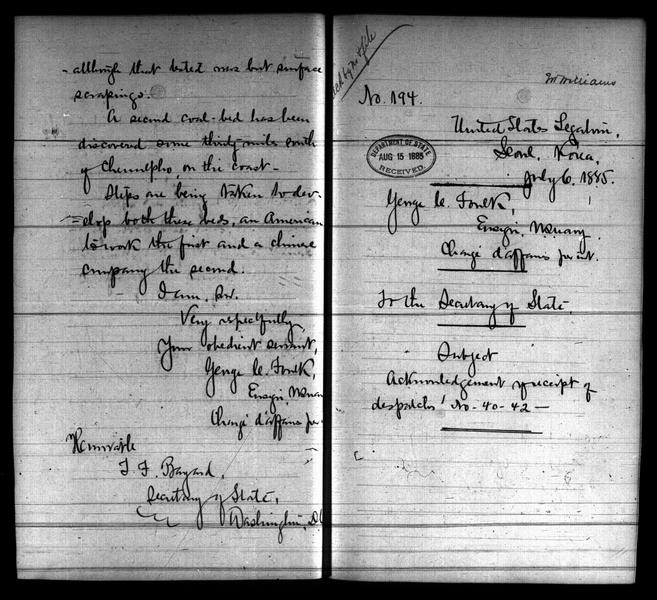 - although that tested was but surface
scrapings.
A second coal-bed has been
discovered some thirty miles south
of Chemulpho, on the coast -
Steps are being taken to dev-
=elop both these beds, an American
to work the first and a Chinese
company the second.
I am, Sir,
Very respectfully
Your obedient servant,
George C. Foulk,
Ensign, U.S. Navy
Chargé d'affaires per
Honorable
T. F. Bayard,
Secretary of State,
Washington, D.C.
McWilliams
No. 194.
United States Legation,
Seoul, Korea,
July 6, 1885.
DEPARTMENT OF STATE
AUG 15 1885
RECEIVED.
George C. Foulk,
Ensign, U.S. Navy.
Chargé d'affaires per int.
To the Secretary of State.
Subject
Acknowledgement of receipt of
despatches No- 40-42-